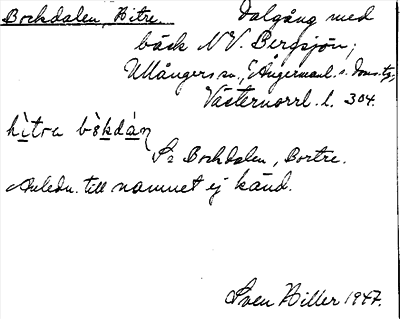 Bockdalen, Hitre. Dalgång med
bäck NV. Bergsjön;
Ullångers sn., Ångermanl. s. doms.
Västernorrl. l. 304.
hitra bòkdán
Se Bockdalen, Bortre.
Anledn. till namnet ej känd.
Sven Hiller 1947.